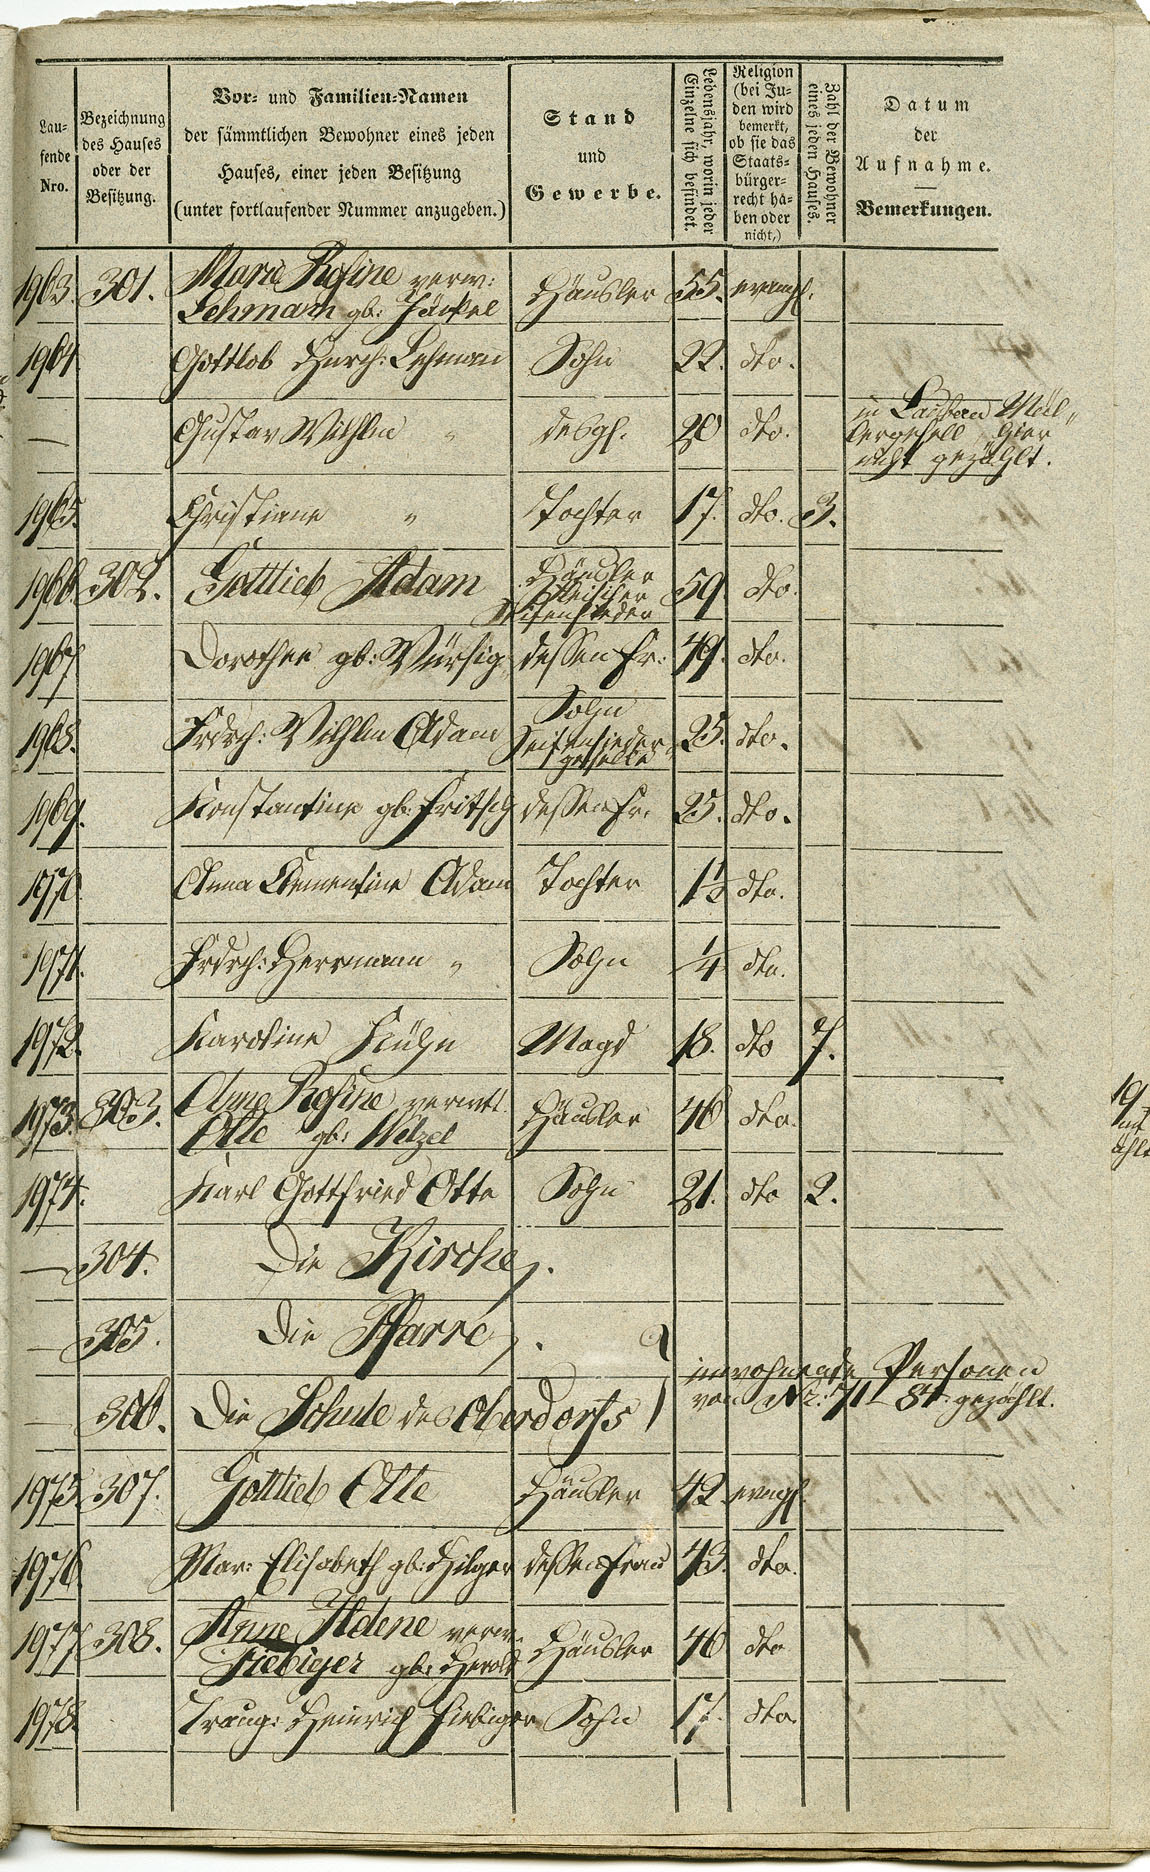 Lau-
fende
Nro.
Bezeichnung
des Hauses
oder der
Besitzung.
Vor- und Familien-Namen
der sämmtlichen Bewohner eines jeden
Hauses, einer jeden Besitzung
(unter fortlaufender Nummer anzugeben.)
Stand
und
Gewerbe.
Lebensjahr, worin jeder
Einzelne sich befindet.
Religion
(bei Ju-
den wird
bemerkt,
ob sie das
Staats-
bürger-
recht ha-
ben oder
nicht,)
Zahl der Bewohner
eines jeden Hauses.
Datum
der
Aufnahme.
Bemerkungen.
1963. 301. Marie Rosine verw:
Lehmann gb: Jäckel Häusler 55. evangl.
1964. Gottlob Heinrch: Lehmann Sohn 22. dto.
— Gustav Wilhlm " desgl. 20 dto. in Lauban Mül-
lergesell, hier
nicht gezählt.
1965. Christiane " Tochter 17. dto. 3.
1966. 302. Gottlieb Adam Häusler
Fleischer
Seifensieder 59 dto.
1967 Dorothee gb: Würsig dessen Fr: 49. dto.
1968. Frdrch: Wilhlm Adam Sohn
Seifensieder-
geselle 25. dto.
1969. Konstantine gb: Fritsch dessen Fr. 25. dto.
1970. Anna Clementine Adam Tochter 1½ dto.
1971. Frdrch: Herrmann " Sohn ¼ dto.
1972. Karoline Kühn Magd 18. dto 7.
1973. 303. Anne Rosine verwtt.
Otte gb: Wetzel Häusler 46 dto.
1974. Karl Gottfried Otte Sohn 21. dto 2.
— 304. Die Kirche.
— 305. Die Pfarre.
inwohnende Personen
von Nr: 71 - 84 gezählt.
— 306. Die Schule des Oberdorfs
1975. 307. Gottlieb Otte Häusler 42 evangl.
1976. Mar: Elisabeth gb: Hilger dessen Frau 43. dto.
1977 308. Anne Helene verw:
Fiebiger gb: Herold Häusler 46 dto
1978. Traug: Heinrich Fiebiger Sohn 17. dto.